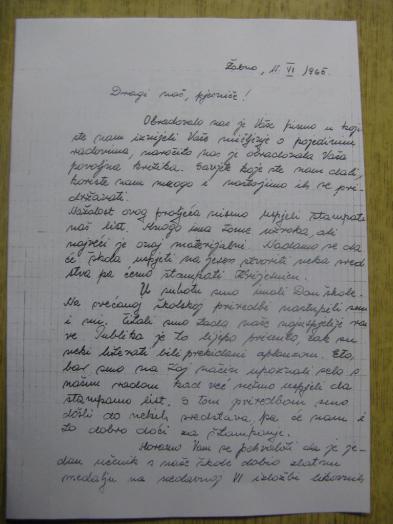 Žabno, 11. VI 1965.
Dragi naš, pjesniče!
Obradovalo nas je Vaše pismo u koje
ste nam iznijeli Vaše mišljenje o pojedinim
radovima, naročito nas je obradovala Vaša
povoljna kritika. Savjeti koje ste nam dali,
koriste nam mnogo i nastojimo ih se pri-
državati.
Nažalost ovog proljeća nismo uspjeli štampati
naš list. Mnogo ima tome uzroka, ali
najveći je onaj materijalni. Nadamo se da
će škola uspjeti na jesen stvoriti neka sred
stva pa ćemo štampati
U subotu smo imali Dan škole.
Na svečanoj školskoj priredbi nastupili smo
i mi. Čitali smo tada naše najuspjelije rado
ve. Publika je to lijepo primila, čak su
neki literati bili prekidani aplauzom. Eto,
bar smo na taj način upoznali selo s
našim radom kad već nismo uspjeli da
štampamo list. S tom priredbom smo
došli do nekih sredstava, pa će nam i
to dobro doći za štampanje.
Moramo Vam se pohvaliti da je je-
dan učenik s naše škole dobio zlatnu
medalju na nedavnoj VI izložbi likovnih